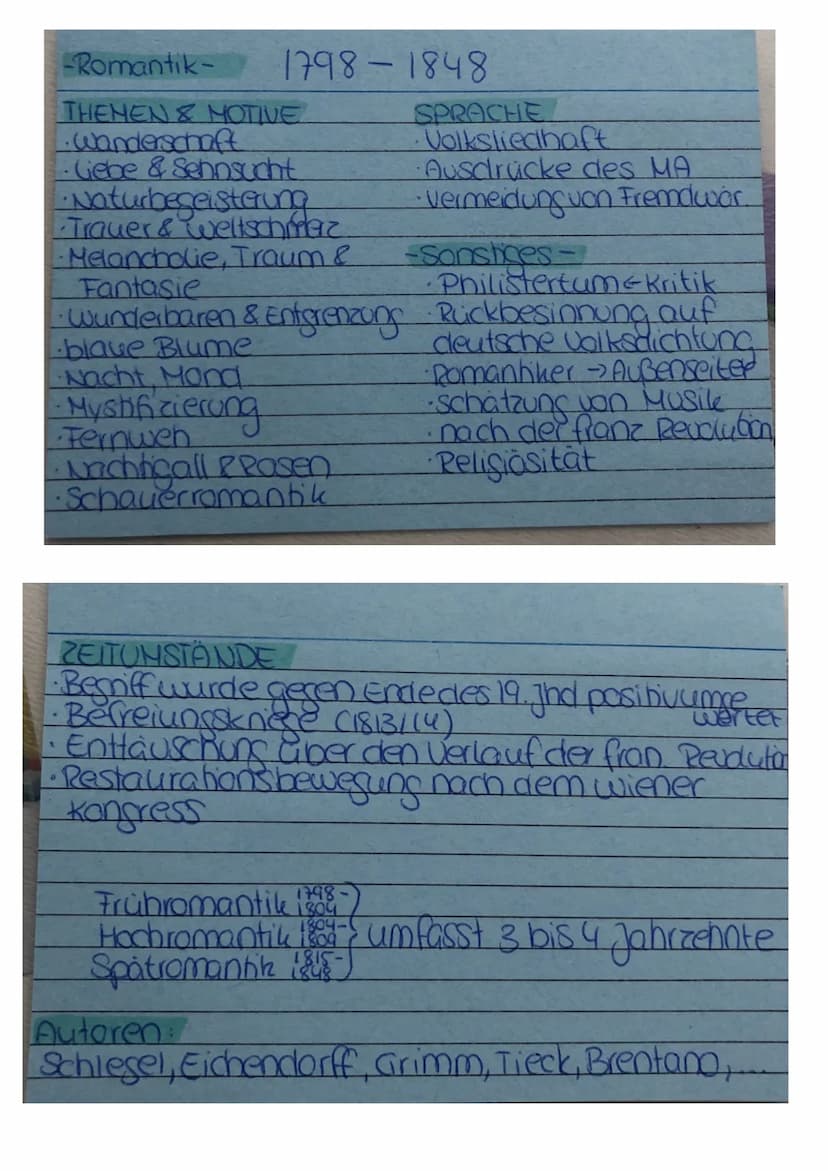 -Romantik- 1798 - 1848
THEMEN & MOTIVE
· Wanderschaft
· Liebe & Sehnsucht
· Naturbegeisterung
· Trauer & Weltschmerz
· Melancholie, Traum &
Fantasie
· Wunderbaren & Entgrenzung
· blaue Blume
· Nacht, Mond
· Mystifizierung
· Fernweh
· Nachtigall & Rosen
· Schauerromantik
SPRACHE
· Volksliedhaft
· Ausdrücke des MA
· Vermeidung von Fremdwör.
-Sonstiges-
· Philistertum ← Kritik
· Rückbesinnung auf
deutsche Volksdichtung
· Romantiker → Außenseiter
· Schätzung von Musik
· nach der franz Revolution
· Religiösität
ZEITUMSTÄNDE
· Begriff wurde gegen Ende des 19. Jhd positiv umge
wertet
· Befreiungskriege (1813/14)
· Enttäuschung über den Verlauf der fran. Revolution
· Restaurationsbewegung nach dem wiener
kongress
Frühromantik 1798 - 1804
Hochromantik 1804 - 1809 } umfasst 3 bis 4 Jahrzehnte
Spätromantik 1815 - 1848
Autoren:
Schlegel, Eichendorff, Grimm, Tieck, Brentano, ...